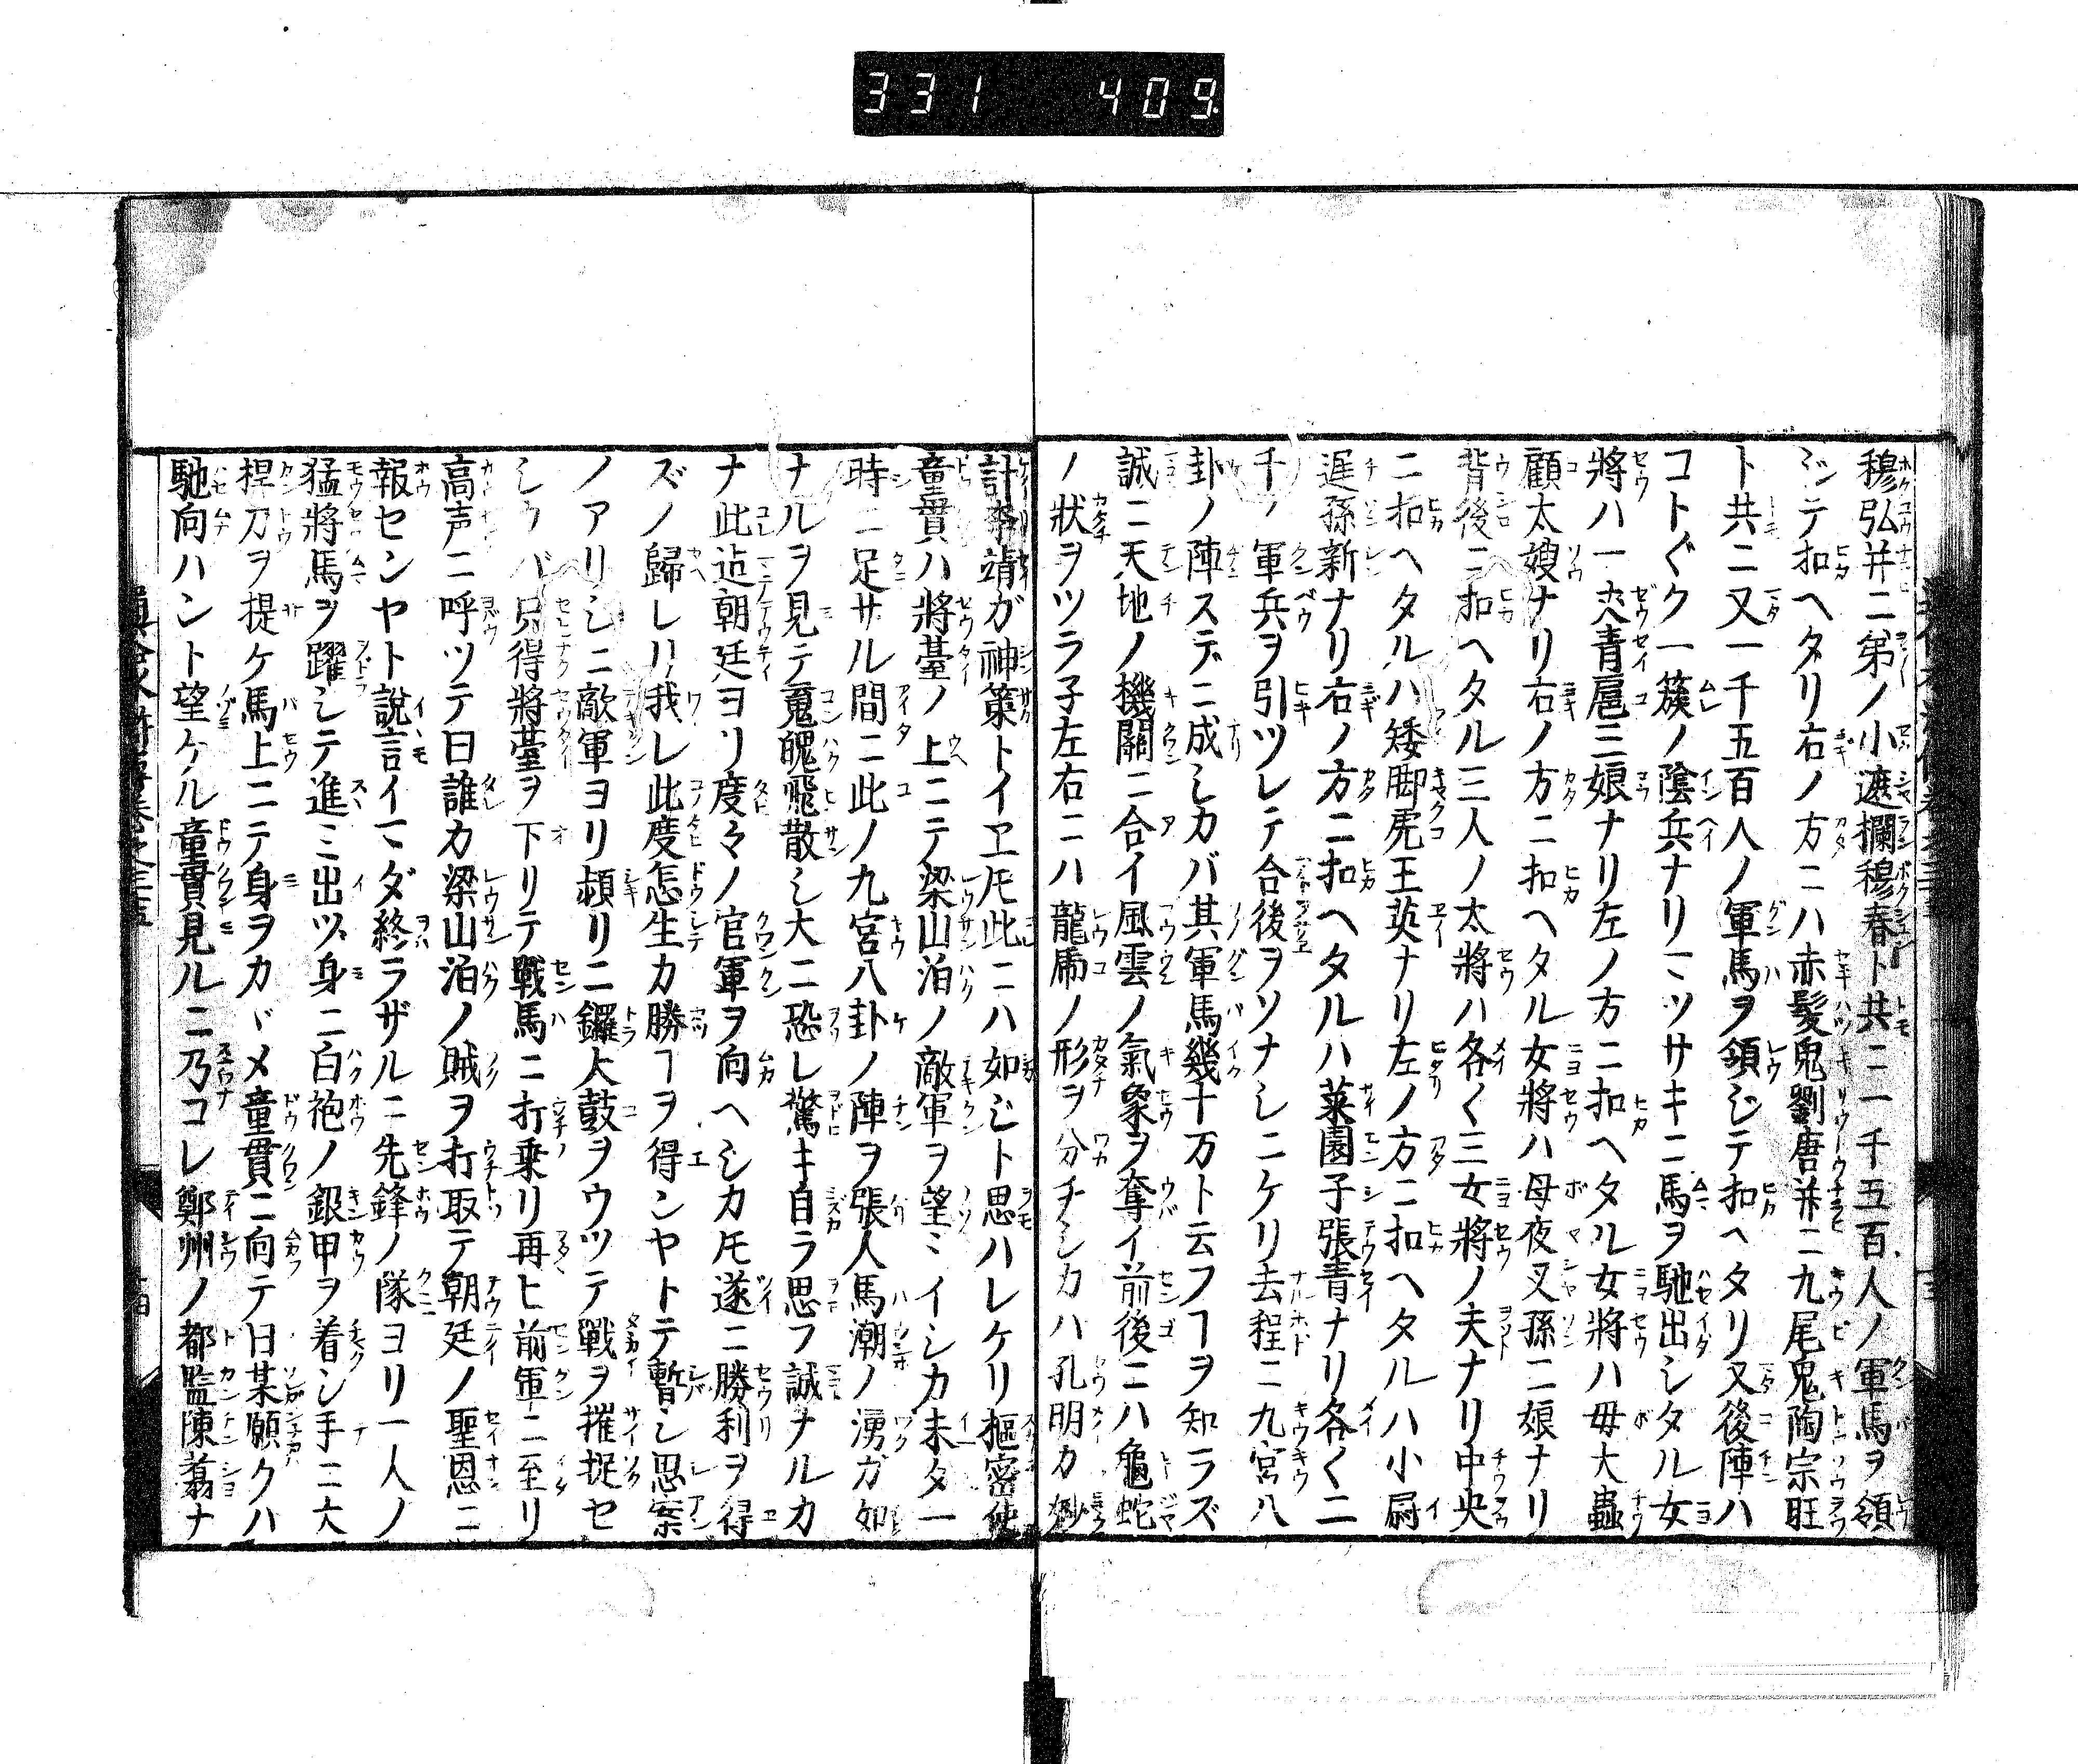 331 409
穆弘并ニ弟ノ小遮攔穆春ト共ニ一千五百人ノ軍馬ヲ領
ジテ扣ヘタリ右ノ方ニハ赤髪鬼劉唐并ニ九尾鬼陶宗旺
ト共ニ又一千五百人ノ軍馬ヲ領ジテ扣ヘタリ又後陣ハ
コトぐク一簇ノ陰兵ナリマツサキニ馬ヲ馳出シタル女
將ハ一丈青扈三娘ナリ左ノ方ニ扣ヘタル女將ハ母大蟲
顧太嫂ナリ右ノ方ニ扣ヘタル女將ハ母夜叉孫二娘ナリ
背後ニ扣ヘタル三人ノ太將ハ各〱三女將ノ夫ナリ中央
ニ扣ヘタルハ矮脚虎王英ナリ左ノ方ニ扣ヘタルハ小尉
遲孫新ナリ右ノ方ニ扣ヘタルハ菜園子張青ナリ各〱二
千ノ軍兵ヲ引ツレテ合後ヲソナシニケリ去程ニ九宮八
卦ノ陣ステニ成シカバ其軍馬幾十万ト云フヿヲ知ラズ
誠ニ天地ノ機關ニ合イ風雲ノ氣象ヲ奪イ前後ニハ龜蛇
ノ狀ヲツラ子左右ニハ龍虎ノ形ヲ分チシカハ孔明カ妙
計李靖ガ神策トイヱ𪜈此ニハ如ジト思ハレケリ摳密使
童貫ハ將臺ノ上ニテ梁山泊ノ敵軍ヲ望ミイシカ未タ一
時ニ足サル間ニ此ノ九宮八卦ノ陣ヲ張人馬潮ノ湧ガ如
ナルヲ見テ䰟魄飛散シ大ニ恐レ驚キ自ラ思フ誠ナルカ
ナ此迠朝廷ヨリ度々ノ官軍ヲ向ヘシカ𪜈遂ニ勝利ヲ得
ズノ歸レリ我レ此度怎生カ勝ヿヲ得ンヤトテ暫シ思案
ノアリシニ敵軍ヨリ頻リニ鑼大鼓ヲウツテ戰ヲ摧捉セ
シカバ只得將臺ヲ下リテ戰馬ニ打乗リ再ヒ前軍ニ至リ
高声ニ呼ツテ曰誰カ梁山泊ノ賊ヲ打取テ朝廷ノ聖恩ニ
報センヤト說言イマダ終ラザルニ先鋒ノ隊ヨリ一人ノ
猛將馬ヲ躍シテ進ミ出ツ身ニ白袍ノ銀甲ヲ着シ手ニ大
桿刀ヲ提ケ馬上ニテ身ヲカヾメ童貫ニ向テ曰某願クハ
馳向ハント望ケル童貫見ルニ乃コレ鄭州ノ都監陳翥ナ